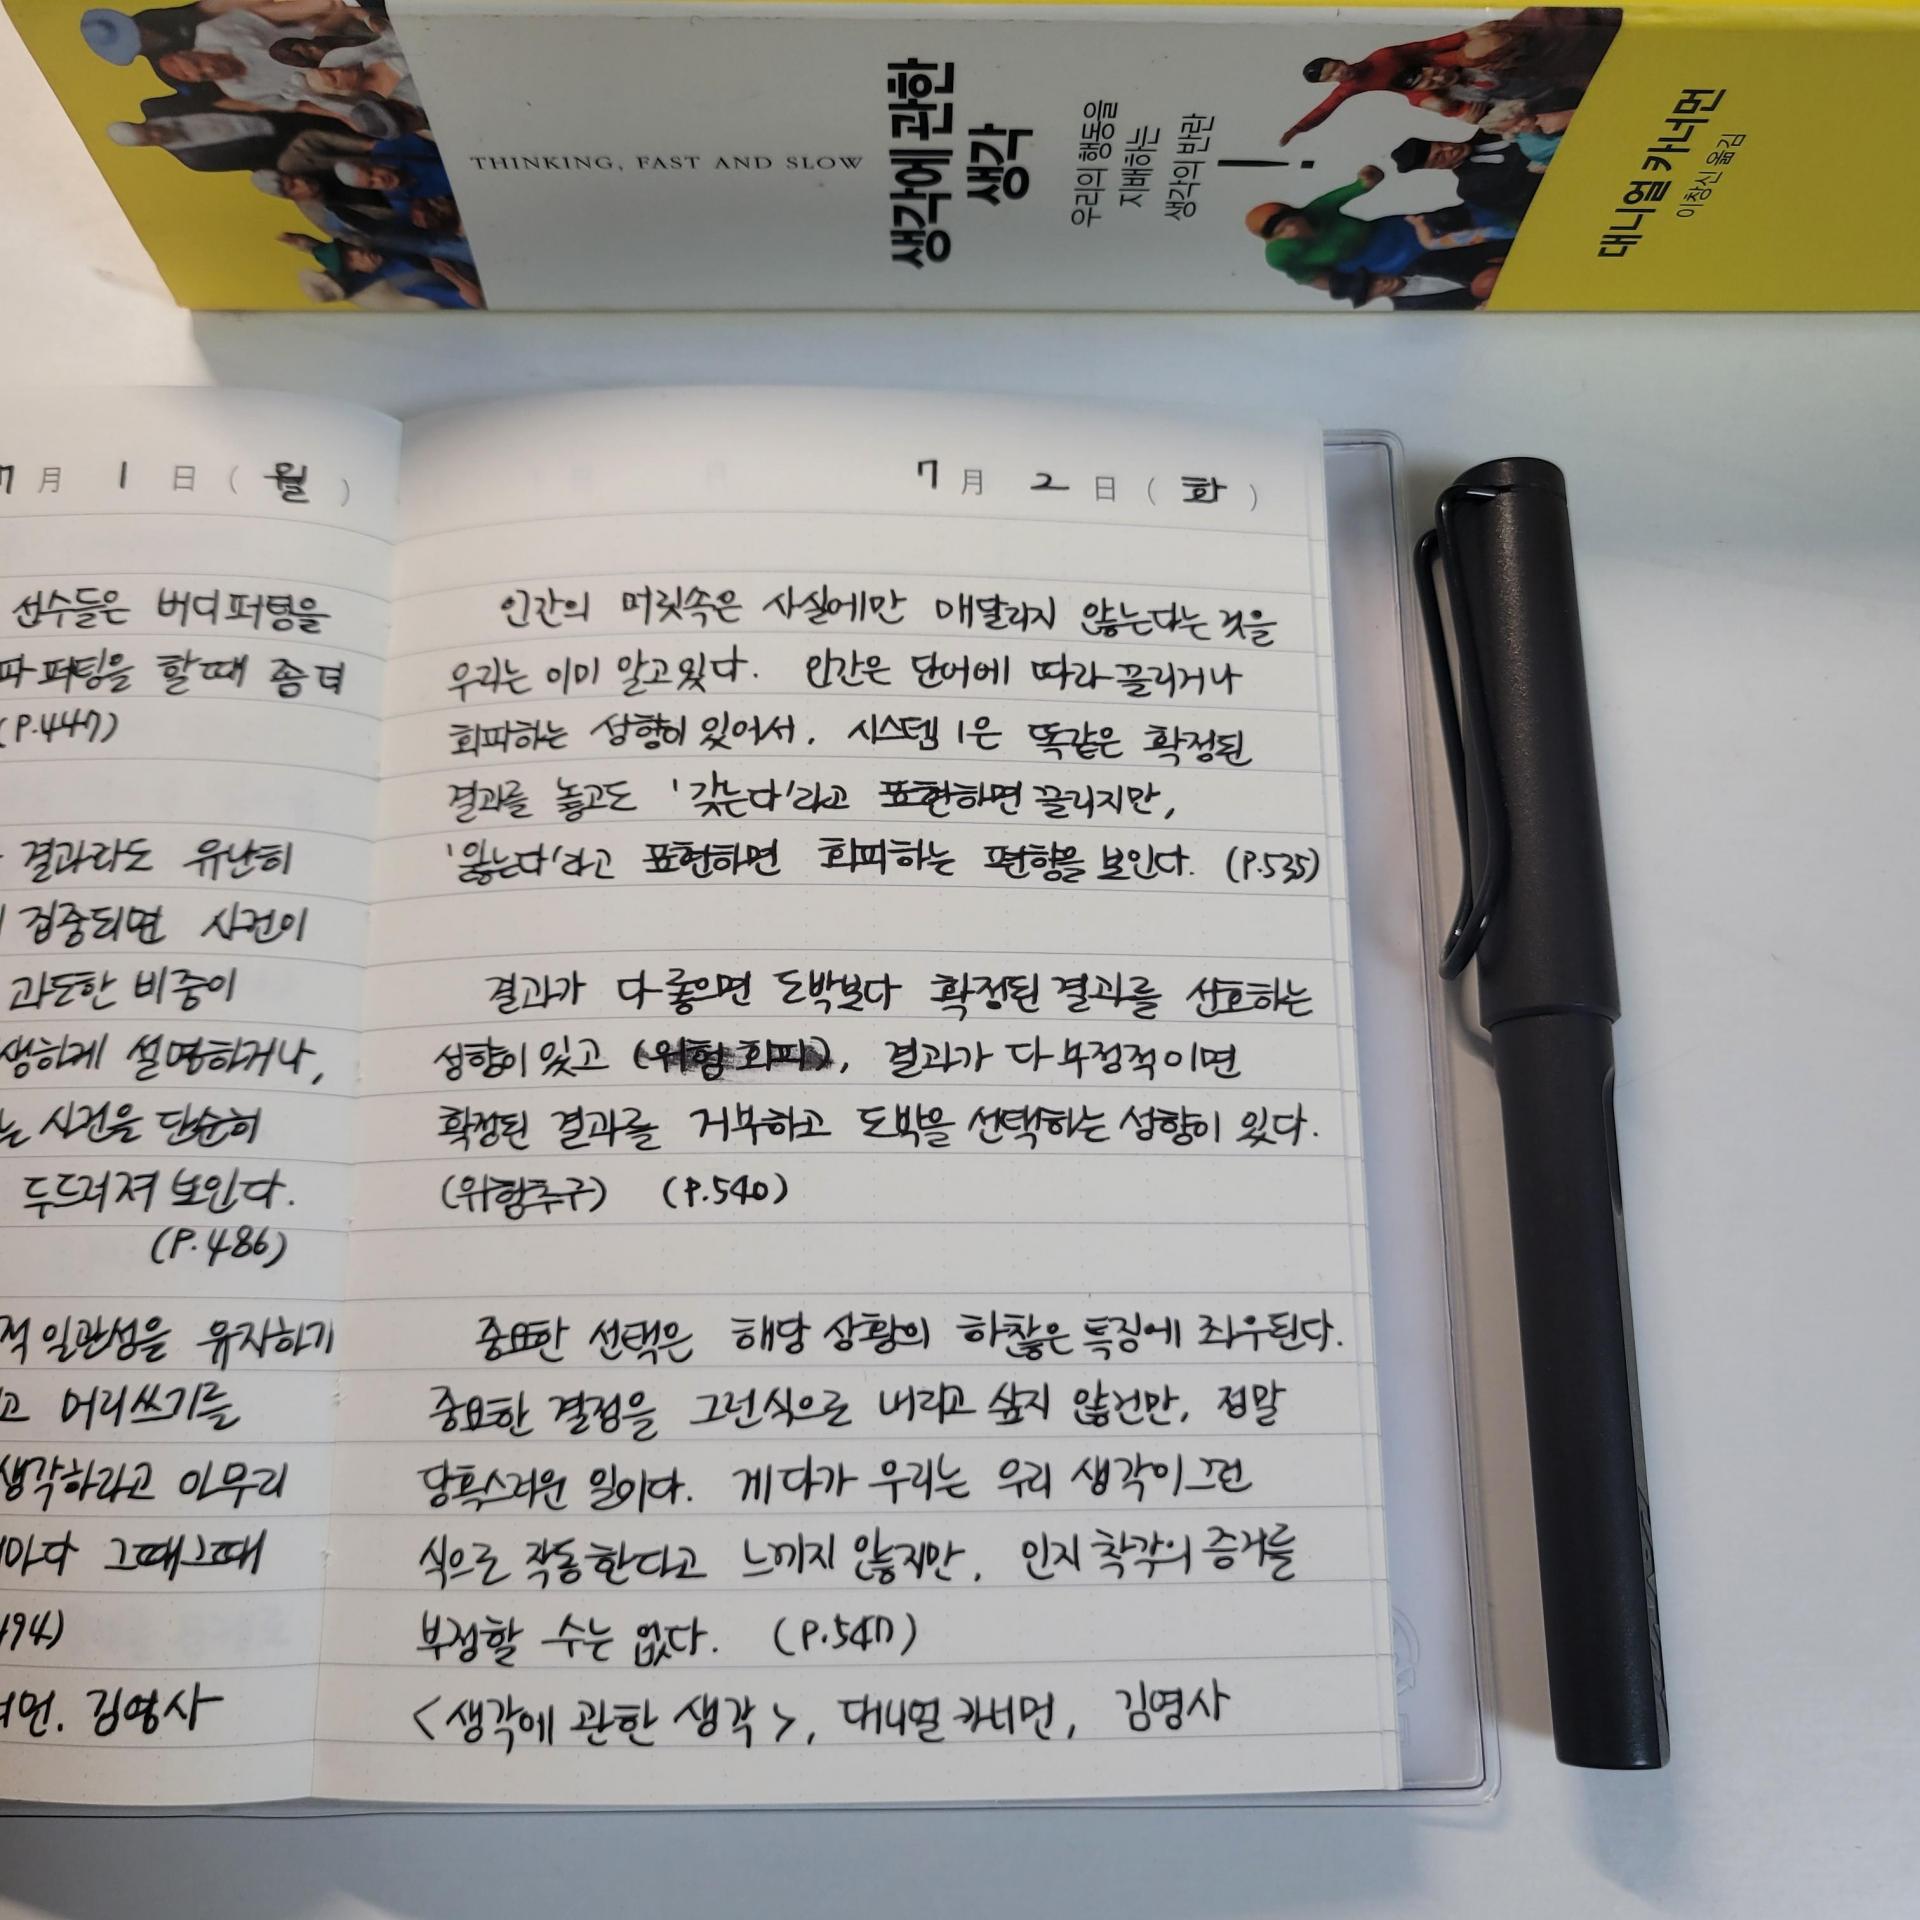 THINKING, FAST AND SLOW
생각에 관한
생각
우리의 행동을
지배하는
생각의 반란
!
대니얼 카너먼
이창신 옮김
7月 1日 (월)
선수들은 버디퍼팅을
파 퍼팅을 할 때 좀 더
(P.447)
결과라도 유난히
집중되면 사건이
과도한 비중이
생하게 설명하거나,
는 사건을 단순히
두드러져 보인다.
(P.486)
적 일관성을 유지하기
고 머리쓰기를
생각하라고 아무리
마다 그때그때
494)
너먼. 김영사
7月 2日 (화)
인간의 머릿속은 사실에만 매달리지 않는다는 것을
우리는 이미 알고있다. 인간은 단어에 따라 끌리거나
회피하는 성향이 있어서, 시스템 1은 똑같은 확정된
결과를 놓고도 '갖는다'라고 표현하면 끌리지만,
'잃는다'라고 표현하면 회피하는 편향을 보인다. (P.535)
결과가 다 좋으면 도박보다 확정된 결과를 선호하는
성향이 있고 (위험 회피), 결과가 다 부정적이면
확정된 결과를 거부하고 도박을 선택하는 성향이 있다.
(위험추구) (P.540)
중요한 선택은 해당 상황의 하찮은 특징에 좌우된다.
중요한 결정을 그런식으로 내리고 싶지 않건만, 정말
당혹스러운 일이다. 게다가 우리는 우리 생각이 그런
식으로 작동한다고 느끼지 않지만, 인지 착각의 증거를
부정할 수는 없다. (P.547)
<생각에 관한 생각>, 대니얼 카너먼, 김영사